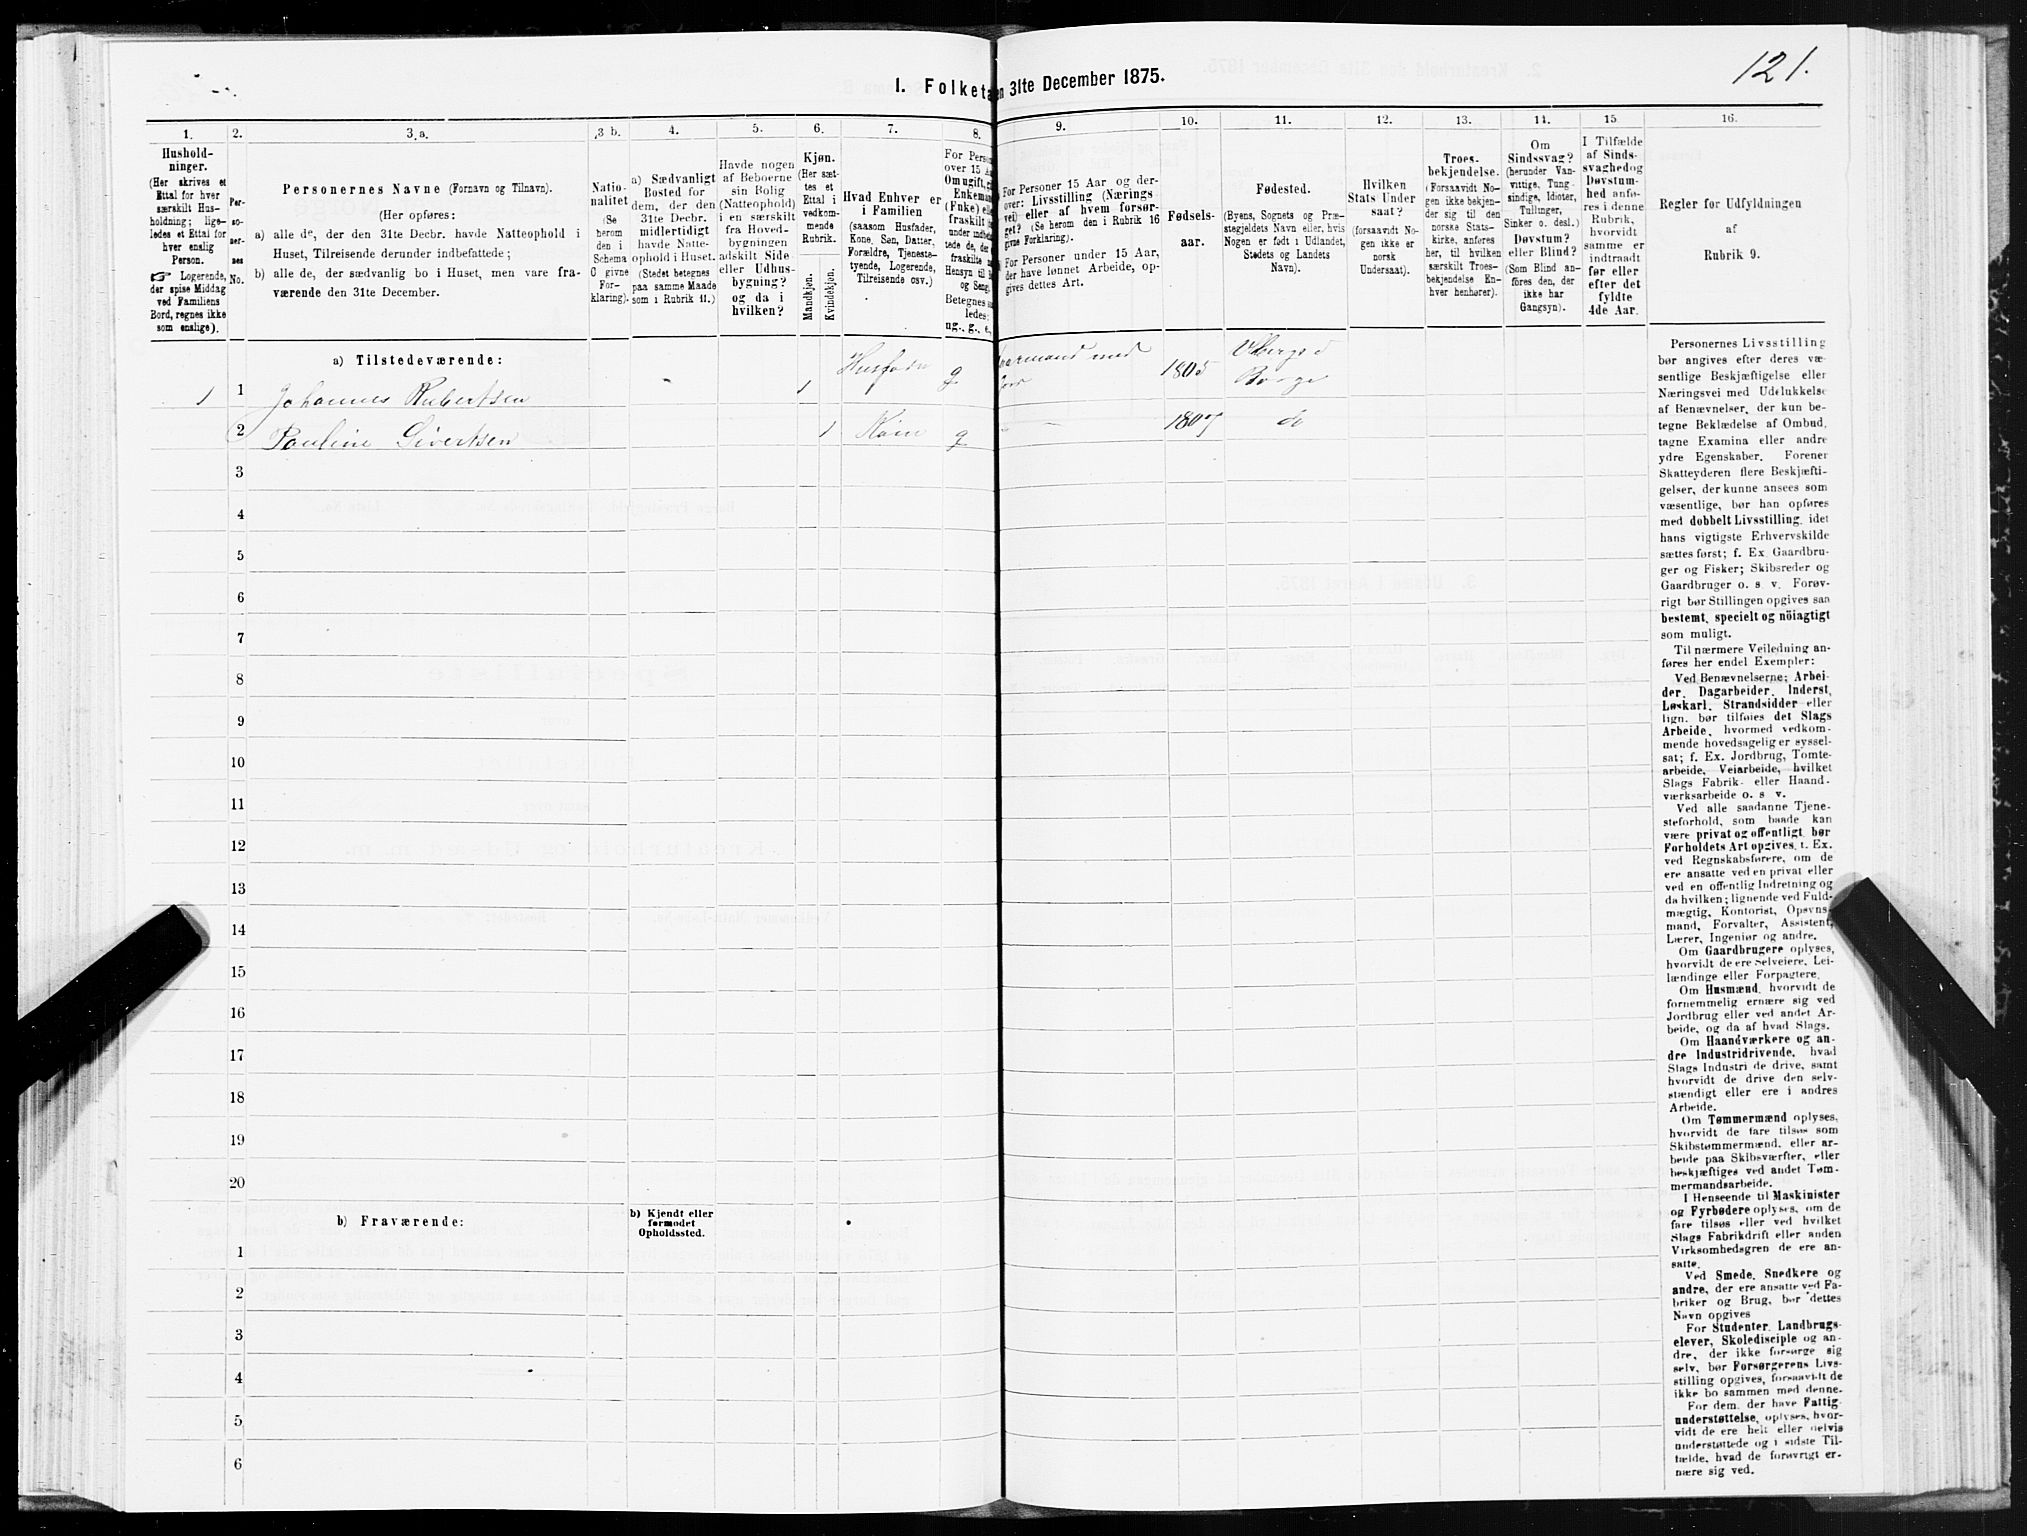 121.
1. Folketa en 31te December 1875.
1.
2.
3.a.
3 b.
4.
5.
6.
7.
8.
9.
10.
11.
12.
13.
14.
15
16.
Hushold-
ninger.
(Her skrives et
Ettal for hver
særskilt Hus-
holdning; lige-
ledes et Ettal for
hver enslig
Person.
☞ Logerende,
der spise Middag
ved Familiens
Bord, regnes ikke
som enslige).
Per-
so-
ner-
nes
No.
Personernes Navne (Fornavn og Tilnavn).
(Her opføres:
a) alle de, der den 31te Decbr. havde Natteophold i
Huset, Tilreisende derunder indbefattede;
b) alle de, der sædvanlig bo i Huset, men vare fra-
værende den 31te December.
Natio-
nalitet
(Se
herom
den i
Schema
C givne
For-
klaring).
a) Sædvanligt
Bosted for
dem, der den
31te Decbr.
midlertidigt
havde Natte-
ophold i Huset.
(Stedet betegnes
paa samme Maade
som i Rubrik 11.)
Havde nogen
af Beboerne
sin Bolig
(Natteophold)
i en særskilt
fra Hoved-
bygningen
adskilt Side-
eller Udhus-
bygning?
og da i
hvilken?
Kjøn.
(Her sæt-
tes et
Ettal i
vedkom-
mende
Rubrik.
Mandkjøn.
Kvindekjøn.
Hvad Enhver er
i Familien
(saasom Husfader,
Kone, Søn, Datter,
Forældre, Tjeneste-
tyende, Logerende,
Tilreisende osv.)
For Person
over 15 A
Om ugift, g
Enkeman
(Fnke) ell
fraskilt
under indbe
tede de, de
fraskilte
Hensyn til
og Seng
Betegnes
ledes:
ng., g., e.,
For Personer 15 Aar og der-
over: Livsstilling (Nærings-
vei) eller af hvem forsør-
get? (Se herom den i Rubrik 16
givne Forklaring).
For Personer under 15 Aar,
der have lønnet Arbeide, op-
gives dettes Art.
Fødsels-
aar.
Fødested.
(Byens, Sognets og Præ-
stegjeldets Navn eller, hvis
Nogen er født i Udlandet,
Stedets og Landets
Navn).
Hvilken
Stats Under
saat?
(forsaavidt No-
gen ikke er
norsk
Undersaat).
Troes-
bekjendelse.
(Forsaavidt No-
gen ikke bekjen-
der sig til den
norske Stats-
kirke, anføres
her, til hvilken
særskilt Troes-
bekjendelse En-
hver henhører).
Om
Sindssvag?
(herunder Van-
vittige, Tung-
sindige, Idioter,
Tullinger,
Sinker o. desl.)
Døvstum?
eller Blind?
(Som Blind an-
føres den, der
ikke har
Gangsyn).
I Tilfælde
af Sinds-
svaghed og
Døvstum-
hed anfø-
res i denne
Rubrik,
hvorvidt
samme er
indtraadt
før eller
efter det
fyldte
4de Aar.
Regler for Udfyldningen
af
Rubrik 9.
a) Tilstedeværende:
1 1 Johannes Rubertsen 1 g 1805
Borge
2 Pauline Sivertsen 1 Kone g 1807 do
3
4
5
6
7
8
9
10
11
12
13
14
15
16
17
18
19
20
b) Fraværende:
b) Kjendt eller
formodet
Opholdssted.
1
2
3
4
5
6
Personernes Livsstilling
bør angives efter deres væ-
sentlige Beskjæftigelse eller
Næringsvei med Udelukkelse
af Benævnelser, der kun be-
tegne Beklædelse af Ombud,
tagne Examina eller andre
ydre Egenskaber. Forener
Skatteyderen flere Beskjæfti-
gelser, der kunne ansees som
væsentlige, bør han opføres
med dobbelt Livsstilling, idet
hans vigtigste Erhvervskilde
sættes først; f. Ex. Gaardbru-
ger og Fisker; Skibsreder og
Gaardbruger o. s. v. Forøv-
rigt bør Stillingen opgives saa
bestemt, specielt og nöiagtigt
som muligt.
Til nærmere Veiledning an-
føres her endel Exempler:
Ved Benævnelserne; Arbei-
der, Dagarbeider, Inderst,
Løskarl, Strandsidder eller
lign. bør tilføies det Slags
Arbeide, hvormed vedkom-
mende hovedsagelig er syssel-
sat; f. Ex. Jordbrug, Tomte-
arbeide, Veiarbeide, hvilket
Slags Fabrik- eller Haand-
værksarbeide o. s v.
Ved alle saadanne Tjene-
steforhold, som baade kan
være privat og offentligt, bør
Forholdets Art opgives, t. Ex.
ved Regnskabsførere, om de
ere ansatte ved en privat eller
ved en offentlig Indretning og
da hvilken; lignende ved Fuld-
mægtig, Kontorist, Opsyns-
mand, Forvalter, Assistent,
Lærer, Ingeniør og andre.
Om Gaardbrugere oplyses,
hvorvidt de ere Selveiere, Lei-
lændinge eller Forpagtere.
Om Husmænd, hvorvidt de
fornemmelig ernære sig ved
Jordbrug eller ved andet Ar-
beide, og da af hvad Slags.
Om Haandværkere og an-
dre Industridrivende, hvad
Slags Industri de drive, samt
hvorvidt de drive den selv-
stændigt eller ere i andres
Arbeide.
Om Tømmermænd oplyses,
hvorvidt de fare tilsøs som
Skibstømmermænd, eller ar-
beide paa Skibsværfter, eller
beskjæftiges ved andet Tøm-
mermandsarbeide.
I Henseende til Maskinister
og Fyrbødere oplyses, om de
fare tilsøs eller ved hvilket
Slags Fabrikdrift eller anden
Virksomhedsgren de ere an-
satte.
Ved Smede, Snedkere og
andre, der ere ansatte ved Fa-
briker og Brug, bør dettes
Navn opgives
For Studenter, Landbrugs-
elever, Skoledisciple og an-
dre, der ikke forsørge sig
selv, bør Forsørgerens Livs-
stilling opgives, forsaavidt de
ikke bo sammen med denne.
For dem, der have Fattig-
understøttelse, oplyses, hvor-
vidt de ere helt eller delvis
understøttede og i sidste Til-
fælde, hvad de forøvrigt er-
nære sig ved.